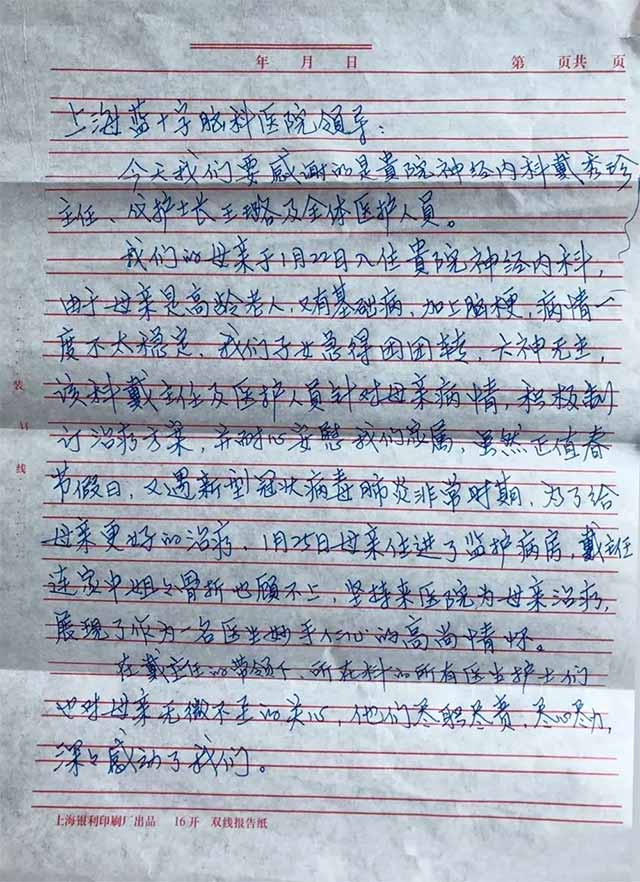 年 月 日 第 页共 页
上海蓝十字脑科医院领导:
今天我们要感谢的是貴院神经内科戴秀珍
主任、仪护士长王璐及全体医护人员。
我们的母亲于1月22日入住貴院神经内科,
由于母亲是高龄老人,又有基础病,加上脑梗,病情一
度不太稳定,我们子女急得团团转,六神无主,
该科戴主任及医护人员针对母亲病情,积极制
订治疗方案,并耐心安慰我们家属,虽然正值春
节假日,又遇新型冠状病毒肺炎非常时期,为了给
母亲更好的治疗,1月25日母亲住进了监护病房,戴主任
连家中姐々骨折也顾不上,坚持来医院为母亲治疗,
展现了作为一名医生妙手仁心的高尚情怀。
在戴主任的带领下,所在科的所有医生护士们
也对母亲无微不至的关心,他们尽职尽责,尽心尽力,
深々感动了我们。
装订线
上海银利印刷厂出品 16开 双线报告纸